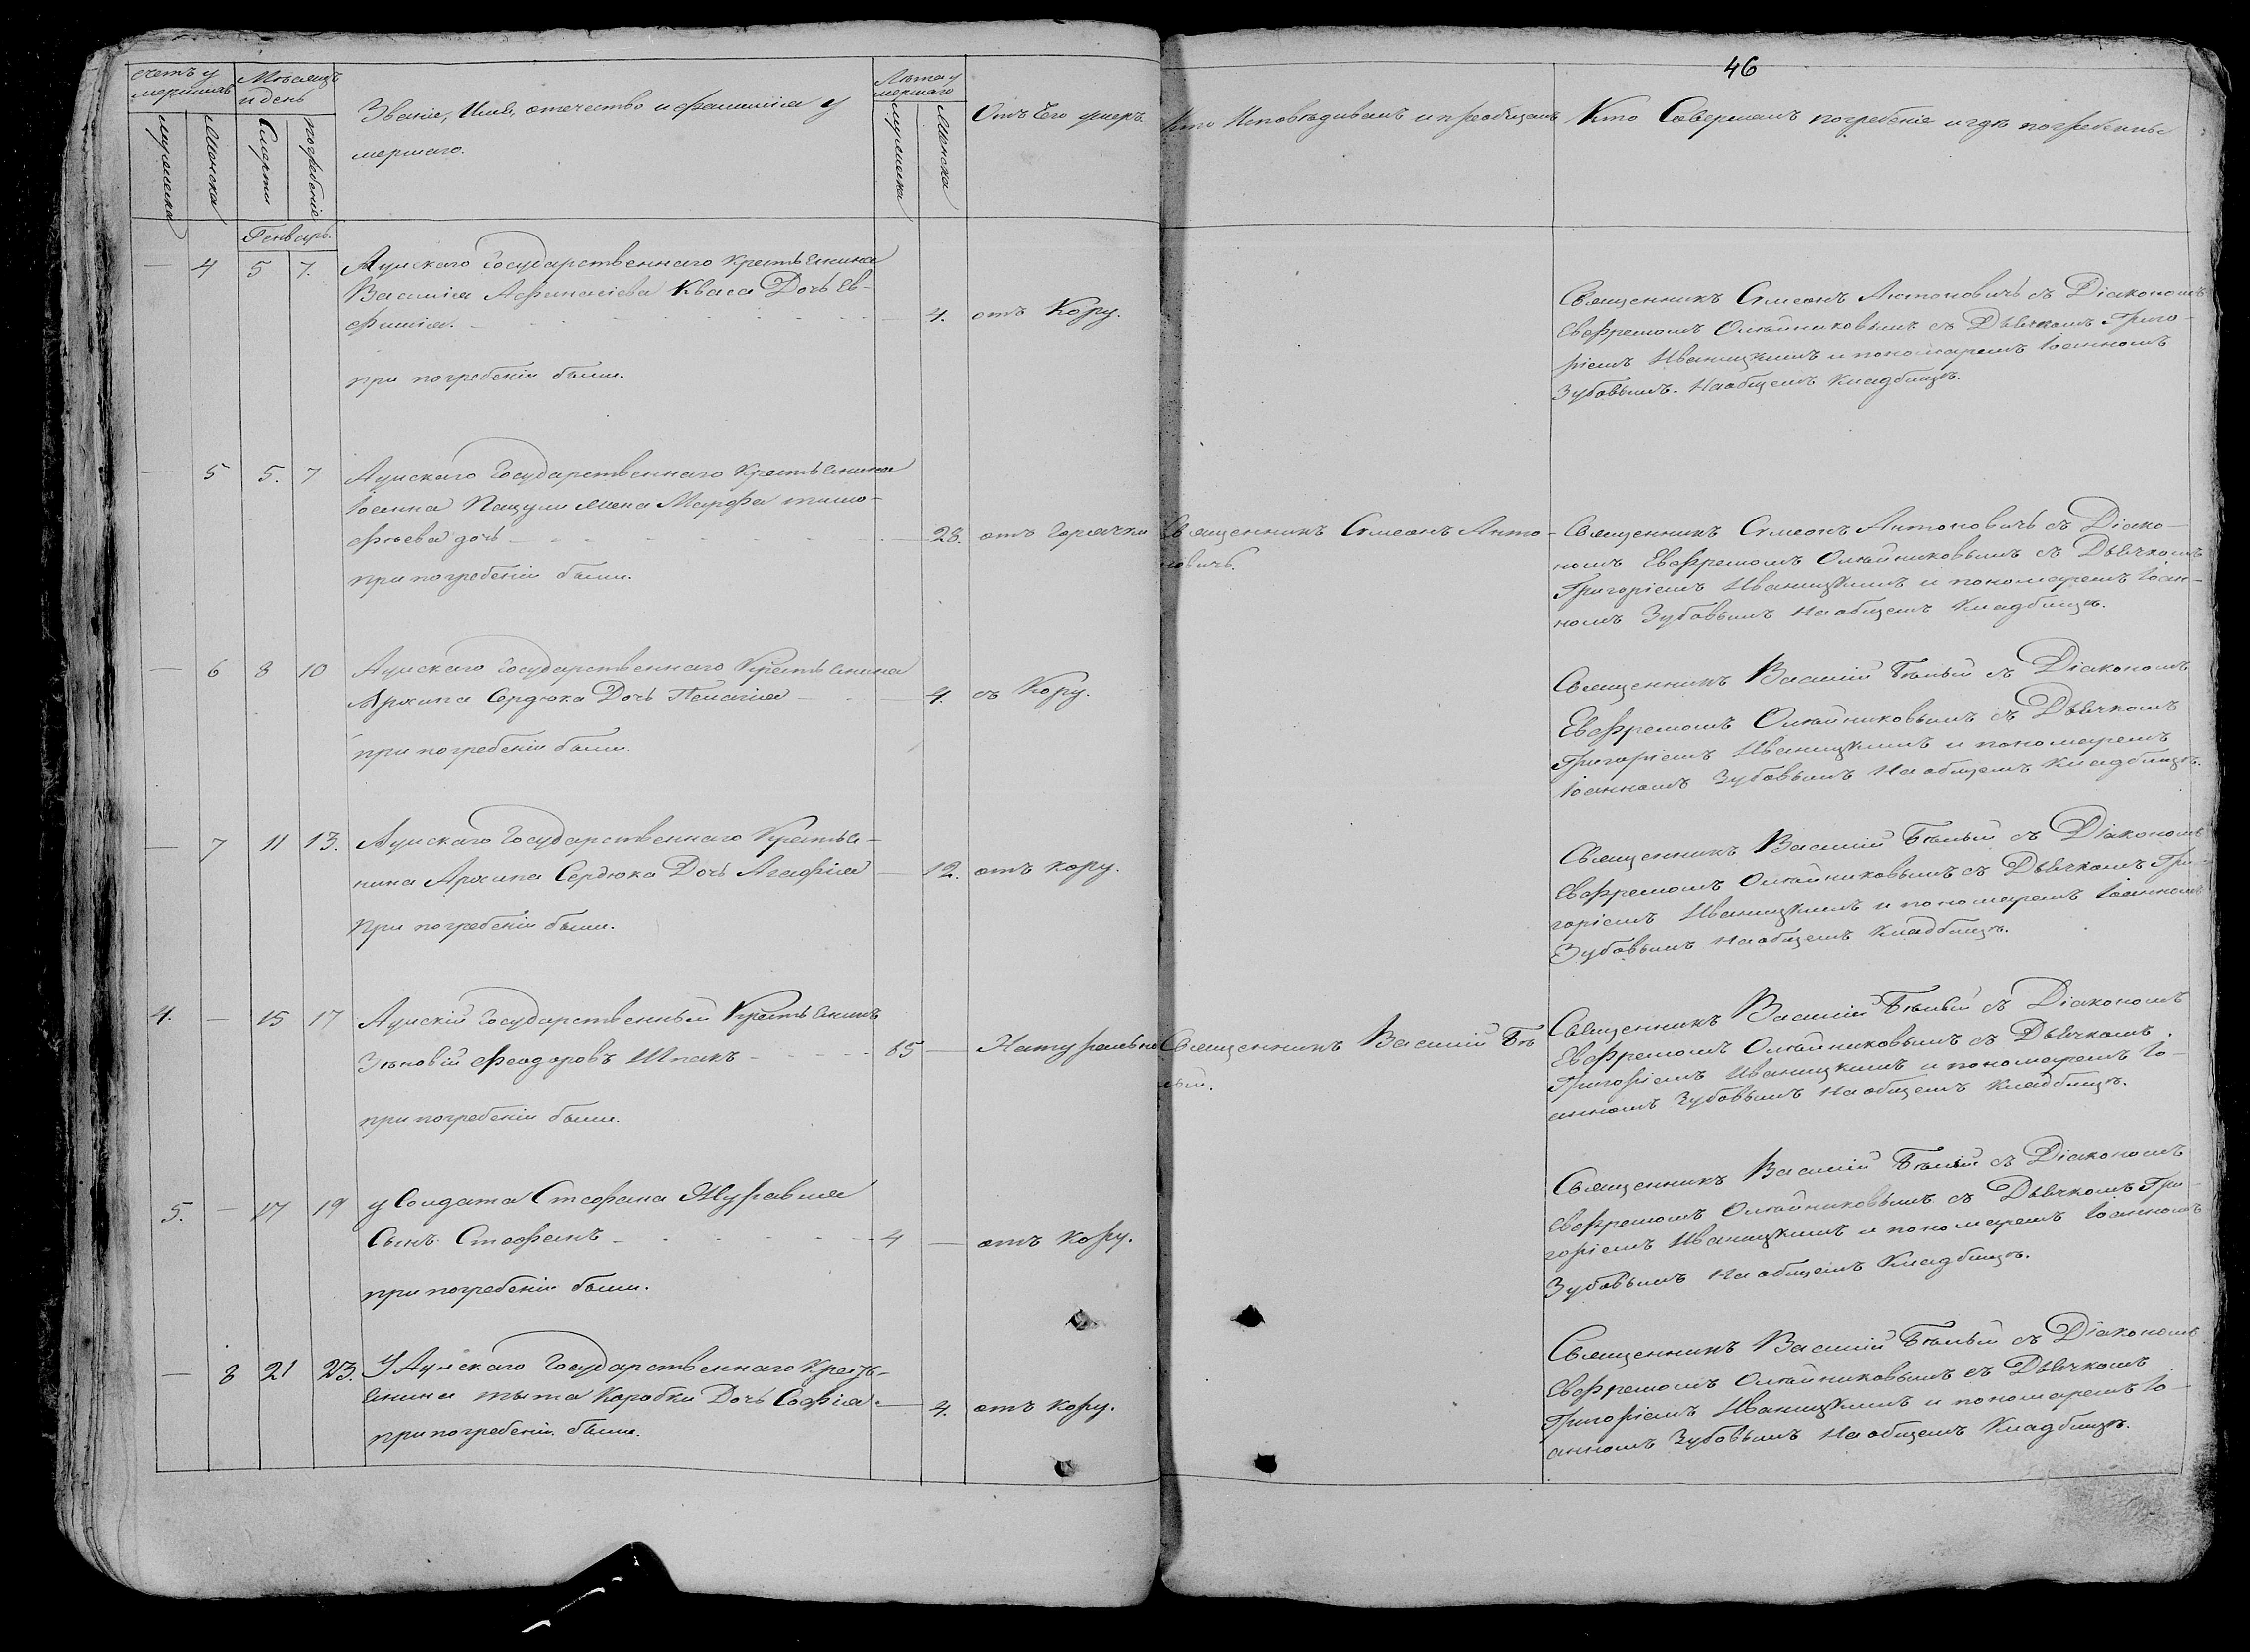 46
Счетъ у
мершихъ
Мѣсяцъ
и день
Званіе, Имя, отечество и фамилія у
мершаго.
Лѣта у
мершаго
Отъ Чего умеръ.
Кто Исповѣдивалъ и пріобщалъ
Кто Совершалъ погребеніе и гдѣ погребенны
мужеска
Женска
Смерти
погребенія
мужеска
Женска
Генварь.
— 4 5 7. Аульскаго Государственнаго крестьянина
Василія Афинасіева Кваса Дочь Ев-
фимія. — 4. отъ Кору.
при погребеніи были.
Священникъ Симеонъ Антоновичь съ Діакономъ
Евфремомъ Олейниковымъ съ Дьячкомъ Григо-
ріемъ Иваницкимъ и пономаремъ Іоанномъ
Зубовымъ. На общемъ кладбищѣ.
— 5 5. 7 Аульскаго Государственнаго Крестьянина
Іоанна Пацули жена Марфа тимо-
фѣева дочь — 28. отъ Горячки
при погребеніи были.
Священникъ Симеонъ Анто-
новичь.
Священникъ Симеонъ Антоновичь съ Діако-
номъ Евфремомъ Олейниковымъ съ Дьячкомъ
Григоріемъ Иваницкимъ и пономаремъ Іоан-
номъ Зубовымъ На общемъ Кладбищѣ.
— 6 8 10 Аульскаго Государственнаго Крестьянина
Архипа Сердюка Дочь Пелагія — 4. съ Кору.
при погребеніи были.
Священникъ Василій Бѣлый съ Діакономъ
Евфремомъ Олейниковымъ съ Дьячкомъ
Григоріемъ Иваницкимъ и пономаремъ
Іоанномъ Зубовымъ На общемъ кладбищѣ.
— 7 11 13. Аульскаго Государственнаго Крестья-
нина Архипа Сердюка Дочь Агафія — 12. отъ кору.
При погребеніи были.
Священникъ Василій Бѣлый съ Діакономъ
Евфремомъ Олейниковымъ съ Дьячкомъ Гри-
горіемъ Иваницкимъ и пономаремъ Іоанномъ
Зубовымъ На общемъ Кладбищѣ.
4. — 15 17 Аульскій Государственный Крестьянинъ
Зѣновій Феодоровъ Шпакъ 85 — Натурально
при погребеніи были.
Священникъ Василій Бѣ
лый.
Священникъ Василій Бѣлый съ Діакономъ
Евфремомъ Олейниковымъ съ Дьячкомъ
Григоріемъ Иваницкимъ и пономаремъ Іо-
анномъ Зубовымъ На общемъ Кладбищѣ.
5. — 17 19 у Солдата Стефана Журавля
Сынъ Стефанъ 4 — отъ Кору.
при погребеніи были.
Священникъ Василій Бѣлый съ Діакономъ
Евфремомъ Олейниковымъ съ Дьячкомъ Гри-
горіемъ Иваницкимъ и пономаремъ Іоанномъ
Зубовымъ На общемъ Кладбищѣ.
— 8 21 23. У Аульскаго Государственнаго Кресть-
янина тыта Коробки Дочь Софія. — 4. отъ кору.
при погребеніи были.
Священникъ Василій Бѣлый съ Діакономъ
Евфремомъ Олейниковымъ съ Дьячкомъ
Григоріемъ Иваницкимъ и пономаремъ Іо-
анномъ Зубовымъ На общемъ Кладбищѣ.